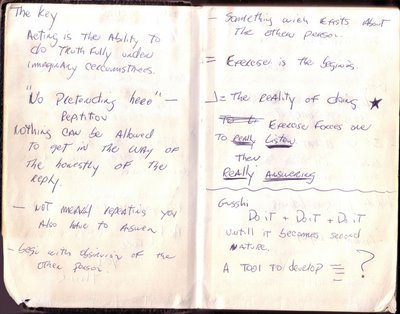 The Key
Acting is the Ability to
do Truthfully under
imaginary circumstances.
"No Pretending here" —
Repitition
Nothing can be Allowed
to get in the way of
the honestly of the
reply.
— not merely repeating you
Also have to Answer
— begin with observing of the
other person.
— Something wich exists About
The other person.
= Exercise is the begining
= The reality of doing ★
Exercise forces one
To Really Listen
Then
Really Answering
Do iT + Do iT + Do iT
untill it becomes second
nature.
A Tool to develop ?